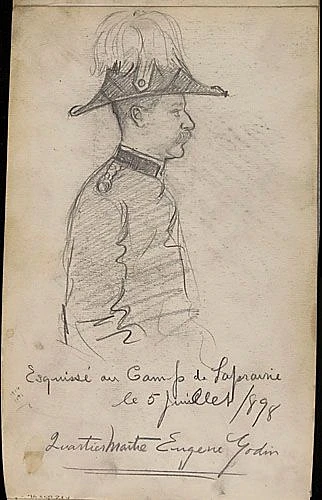 Esquissé au Camp de Laprairie
le 5 juillet 1898
Quartier Maitre Eugene Godin